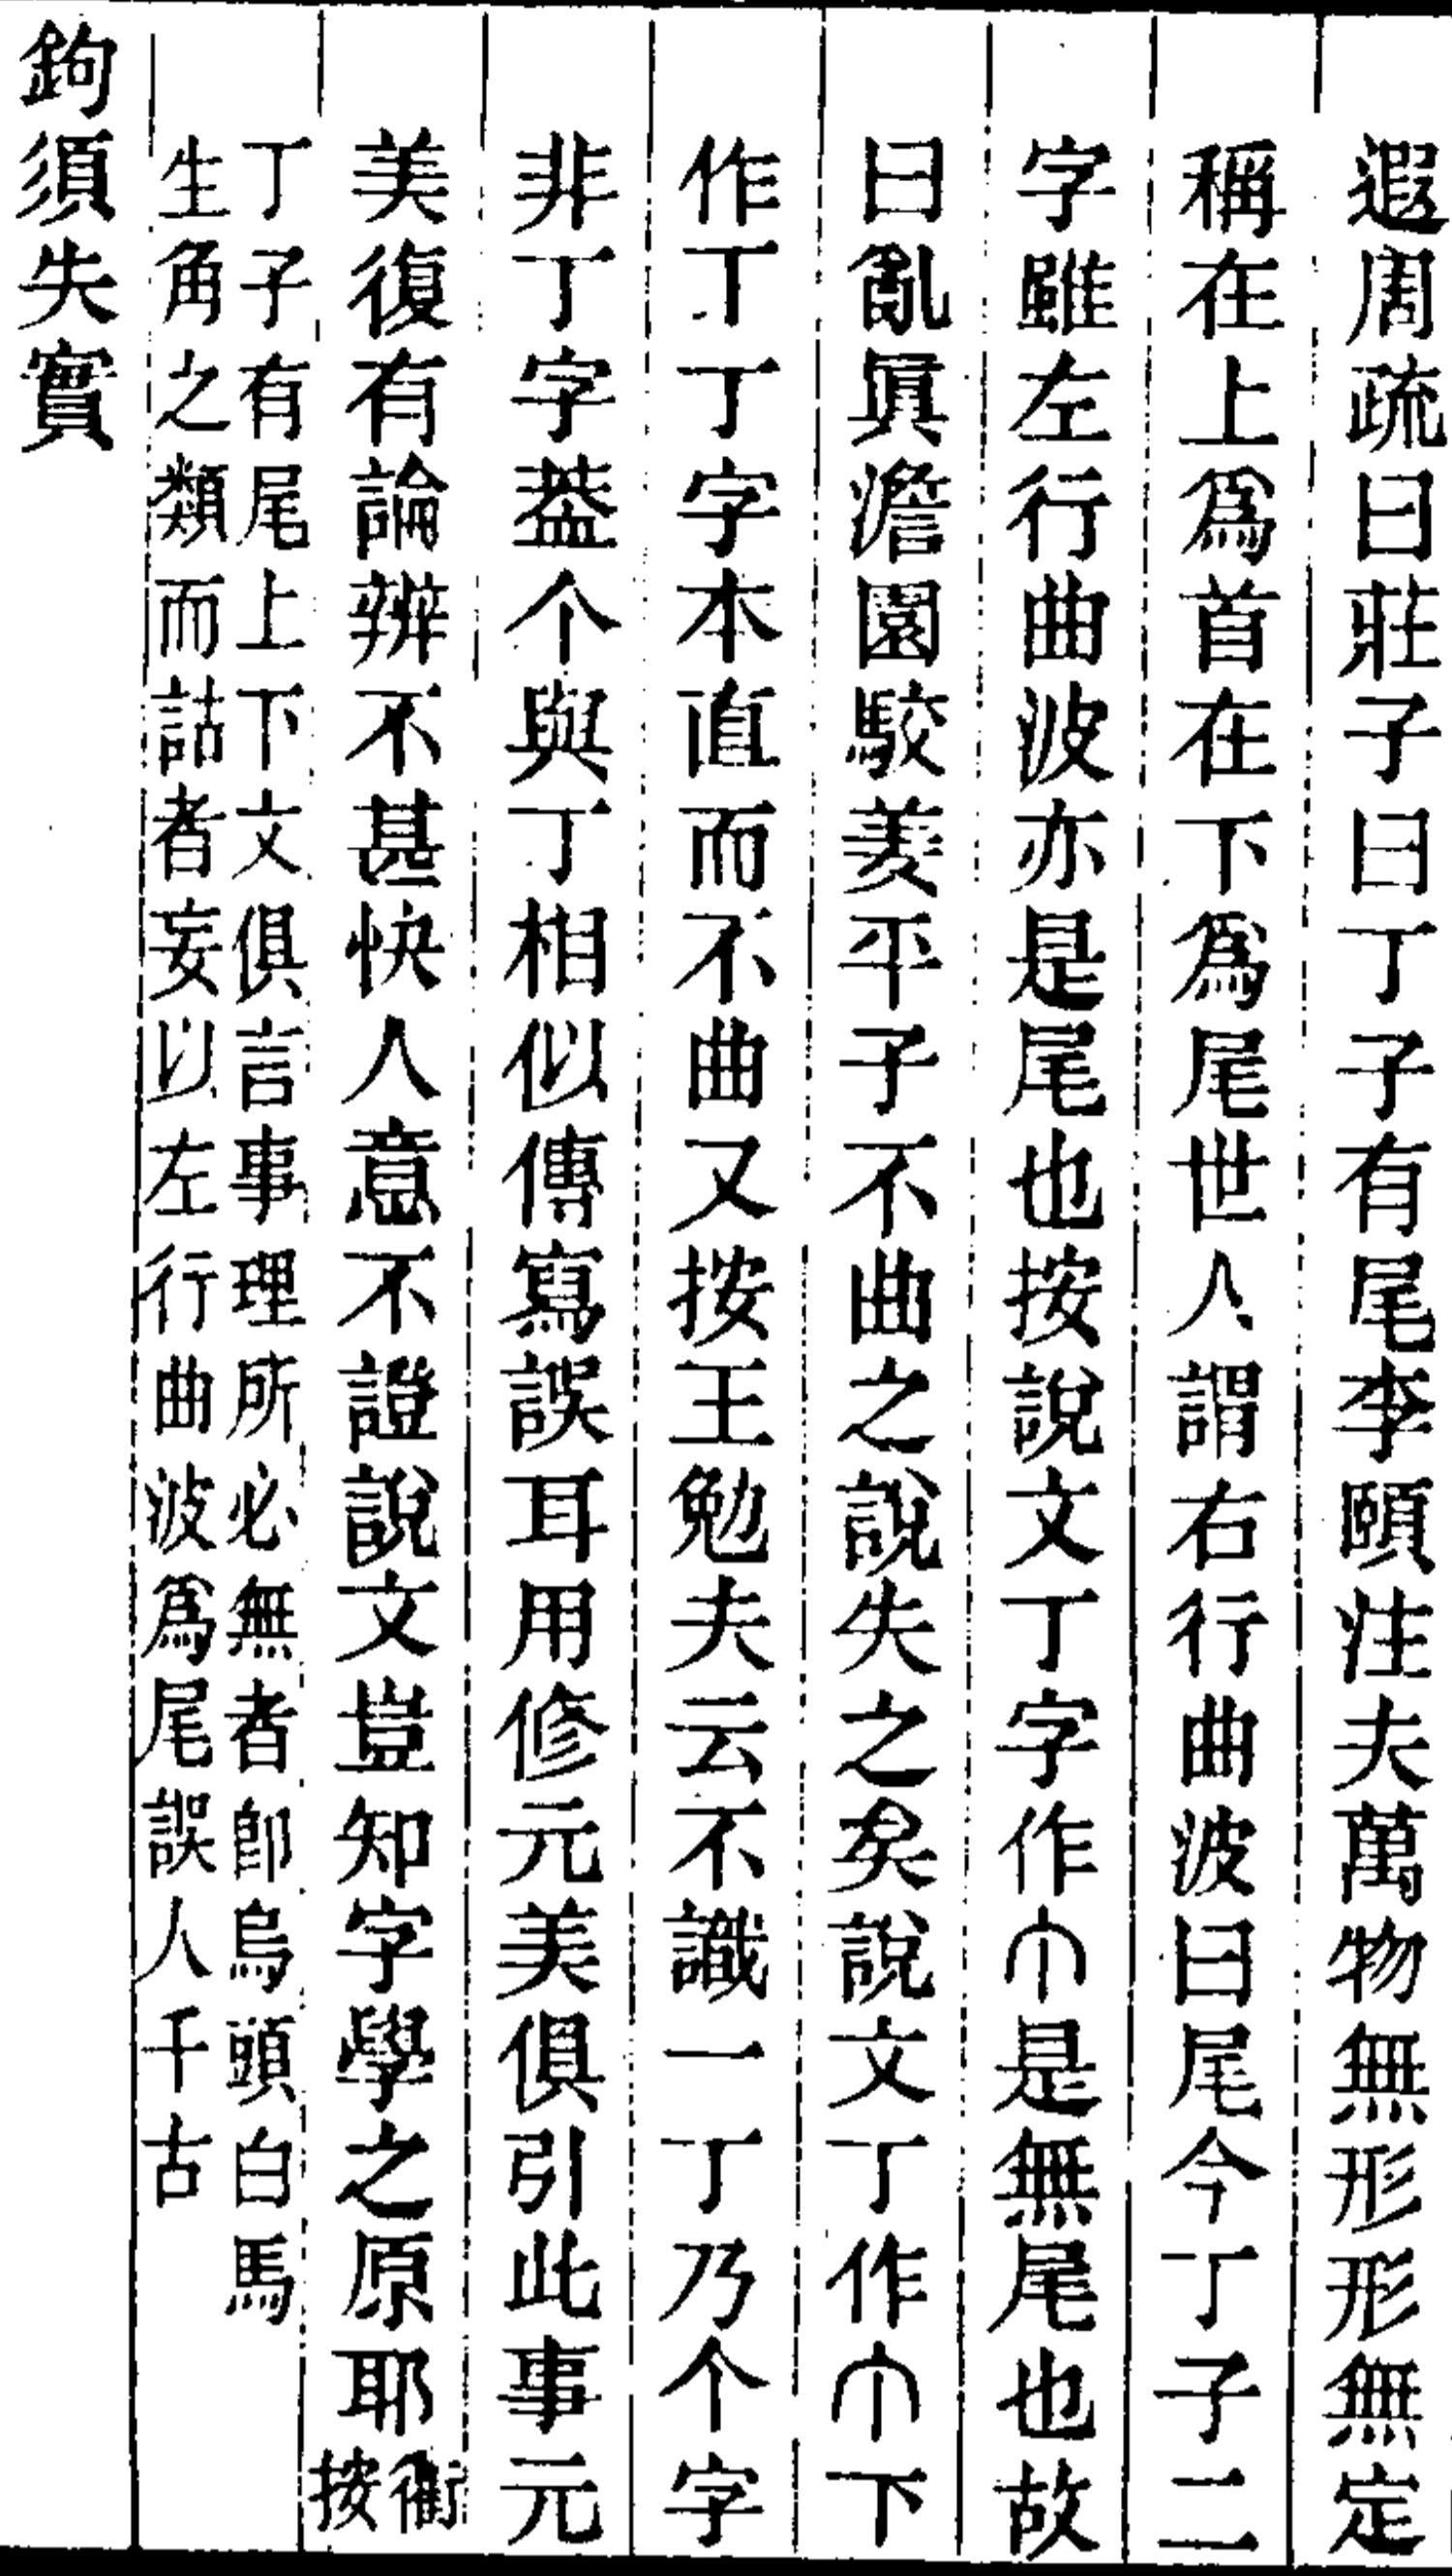 遐周疏曰莊子曰丁子有尾李頤注夫萬物無形形無定
稱在上爲首在下爲尾世人謂右行曲波曰尾今丁子二
字雖左行曲波亦是尾也按說文丁字作是無尾也故
曰亂眞澹園駮菱平子不曲之說失之矣說文丁作下
作丁丁字本直而不曲又按王勉夫云不識一丁乃个字
非丁字葢个與丁相似傳寫誤耳用修元美俱引此事元
美復有論辨不甚快人意不證說文豈知字學之原耶衢按
丁子有尾上下文俱言事理所必無者卽烏頭白馬
生角之類而詁者妄以左行曲波爲尾誤人千古
鉤須失實